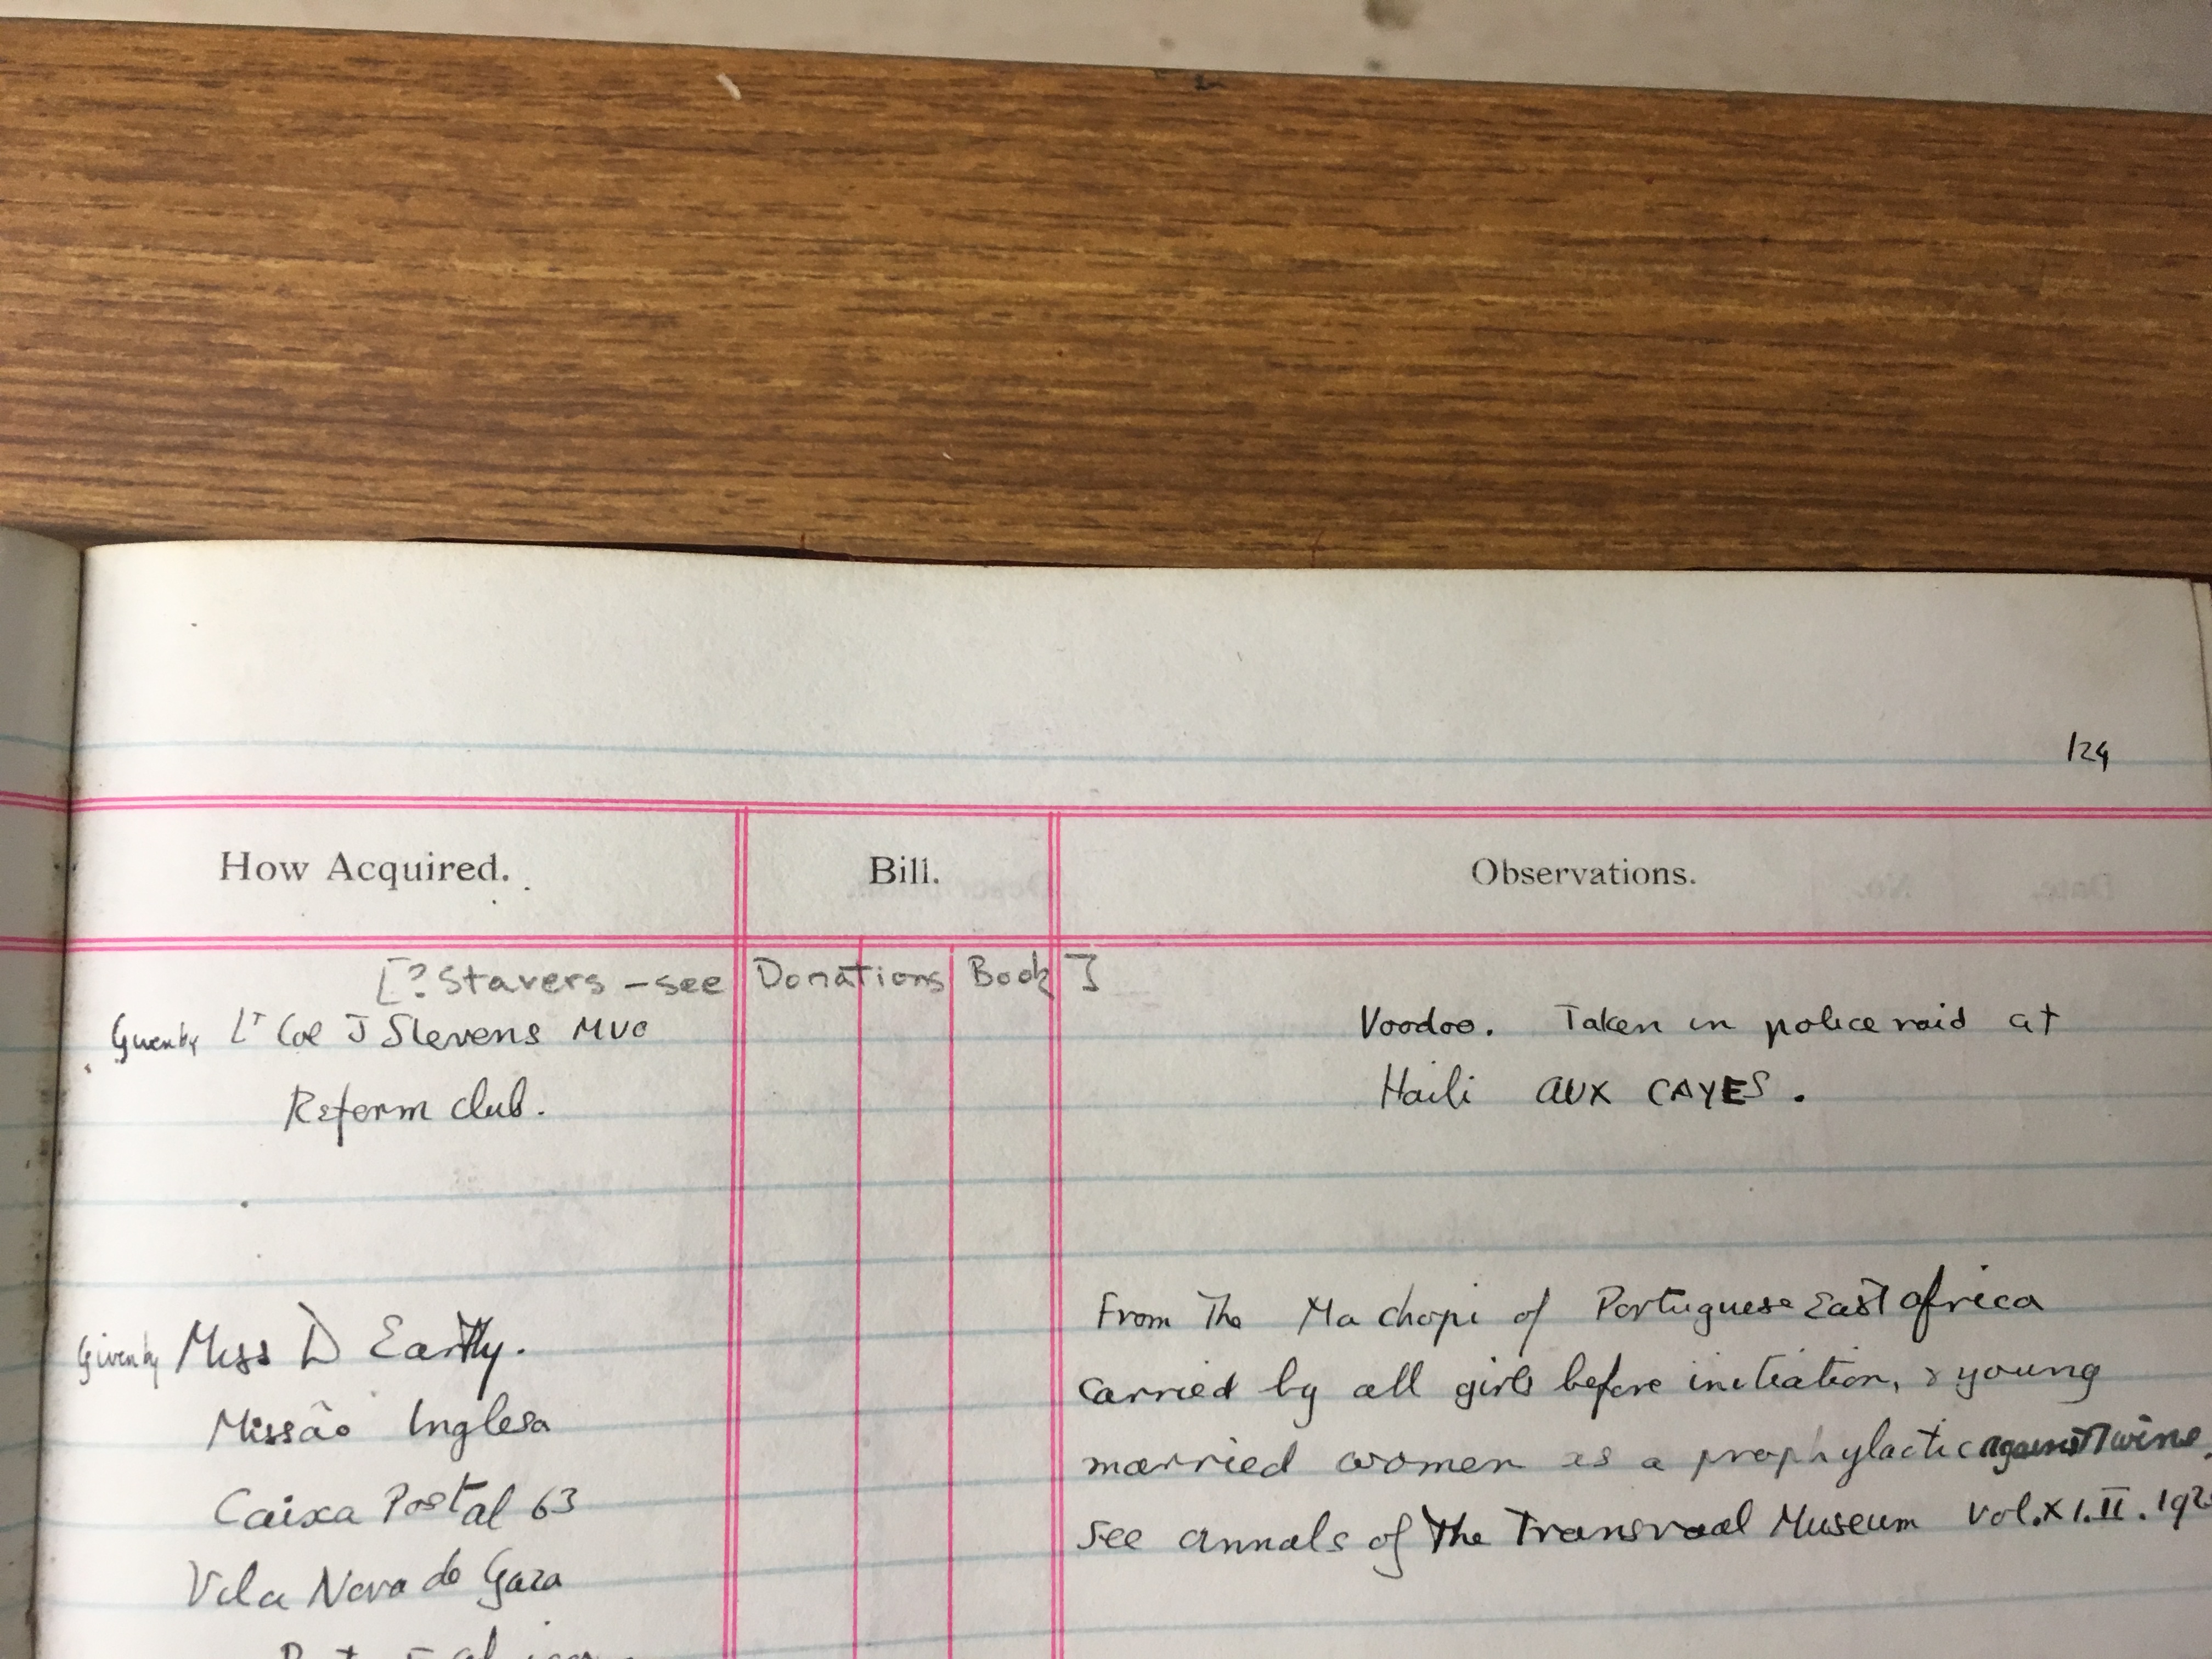 124
How Acquired. Bill. Observations.
[? Stavers – see Donations Book]
Given by Lt Col J Stevens MVO
Reform club.
Voodoo. Taken in police raid at
Haiti AUX CAYES.
Given by Miss D Earthy.
Missão Inglesa
Caixa Postal 63
Vila Nova de Gaza
From The Ma chopi of Portuguese East Africa
carried by all girls before initiation, & young
married women as a prophylactic against Twins.
See annals of The Transvaal Museum Vol. XI. II. 192